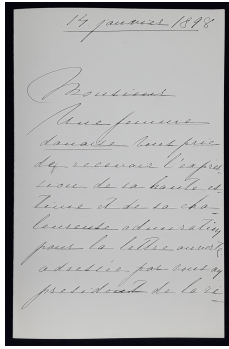 14 janvier 1898
Monsieur
Une femme
danoise vous prie
de recevoir l'expres-
sion de sa haute es-
time et de sa cha-
loureuse admiration
pour la lettre ouverte,
adressée par vous au
président de la re-